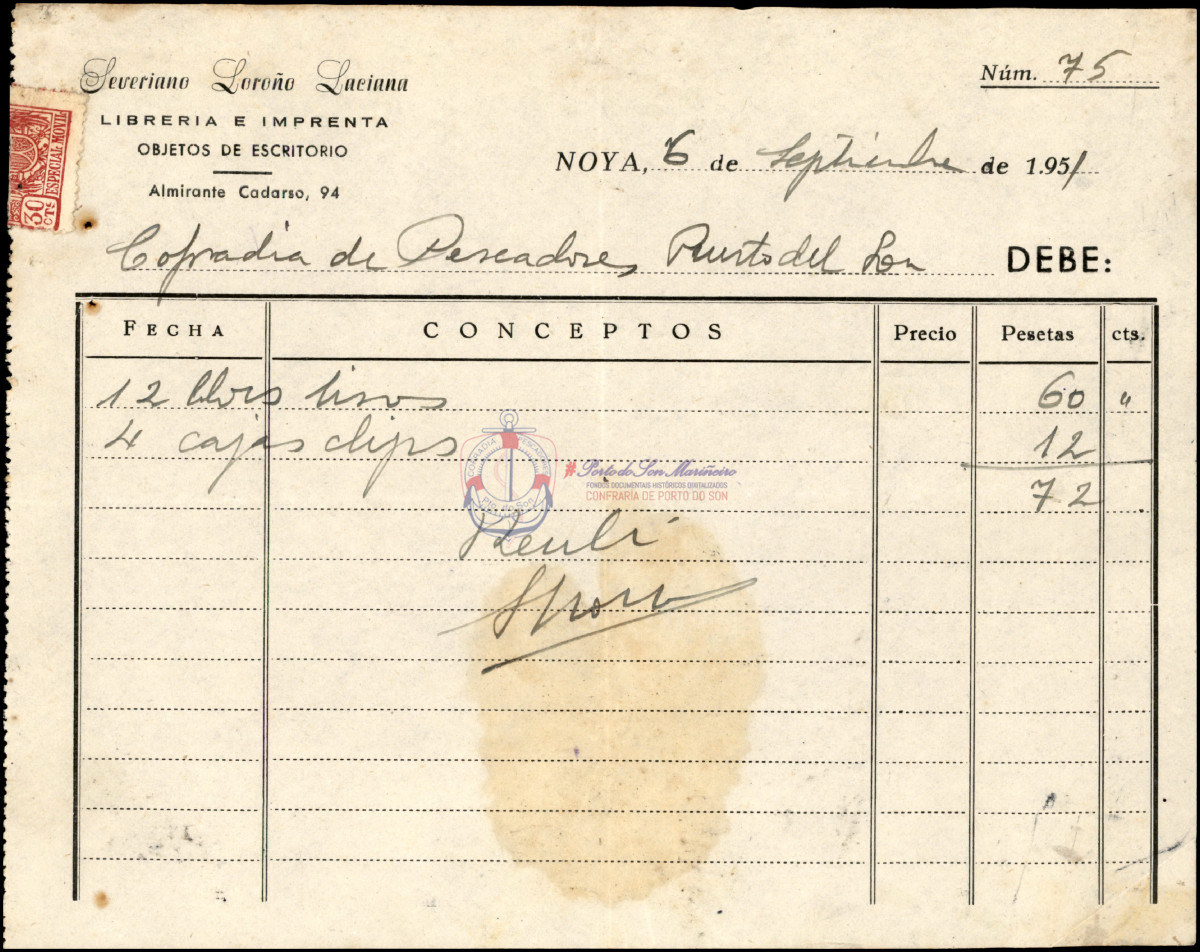 Severiano Loroño Laciana
LIBRERIA E IMPRENTA
OBJETOS DE ESCRITORIO
Almirante Cadarso, 94
ESPECIAL MOVIL
30 CTS
Núm. 75
NOYA, 6 de Septiembre de 1.951
Cofradia de Pescadores Puerto del Son DEBE:
FECHA CONCEPTOS Precio Pesetas cts.
12 libros lisos 60 "
4 cajas clips 12
72
COFRADIA PESCADORES
Pto. do Son
#Porto do Son Mariñeiro
FONDOS DOCUMENTAIS HISTÓRICOS DIXITALIZADOS
CONFRARÍA DE PORTO DO SON
Recibí